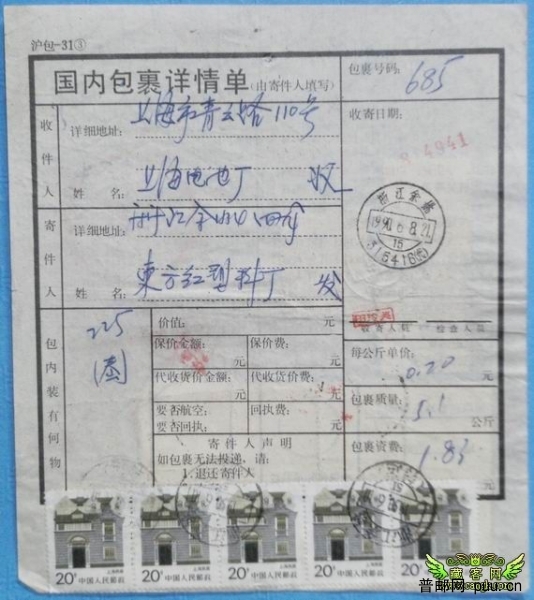 沪包-31③
国内包裹详情单(由寄件人填写)
包裹号码:
685
收件人
详细地址:
上海市青云路110号
收寄日期:
4941
姓 名:
上海电池厂 收
寄件人
详细地址:
浙江余姚
浙江余姚
1990.6.8.21
15
姓 名:
東方红塑料厂 发
包内装有何物
225
价值: 元
收寄人员 检查人员
保价金额: 元
保价费: 元
每公斤单价:
0.20 元
代收货价金额: 元
代收货价费: 元
要否航空:
要否回执:
回执费: 元
包裹质量:
5.1 公斤
寄件人声明
如包裹无法投递,请:
1.退还寄件人
包裹资费:
1.83 元
20分 中国人民邮政
20分 中国人民邮政
20分 中国人民邮政
20分 中国人民邮政
20分 中国人民邮政
藏客网
普邮网-pdu.cn